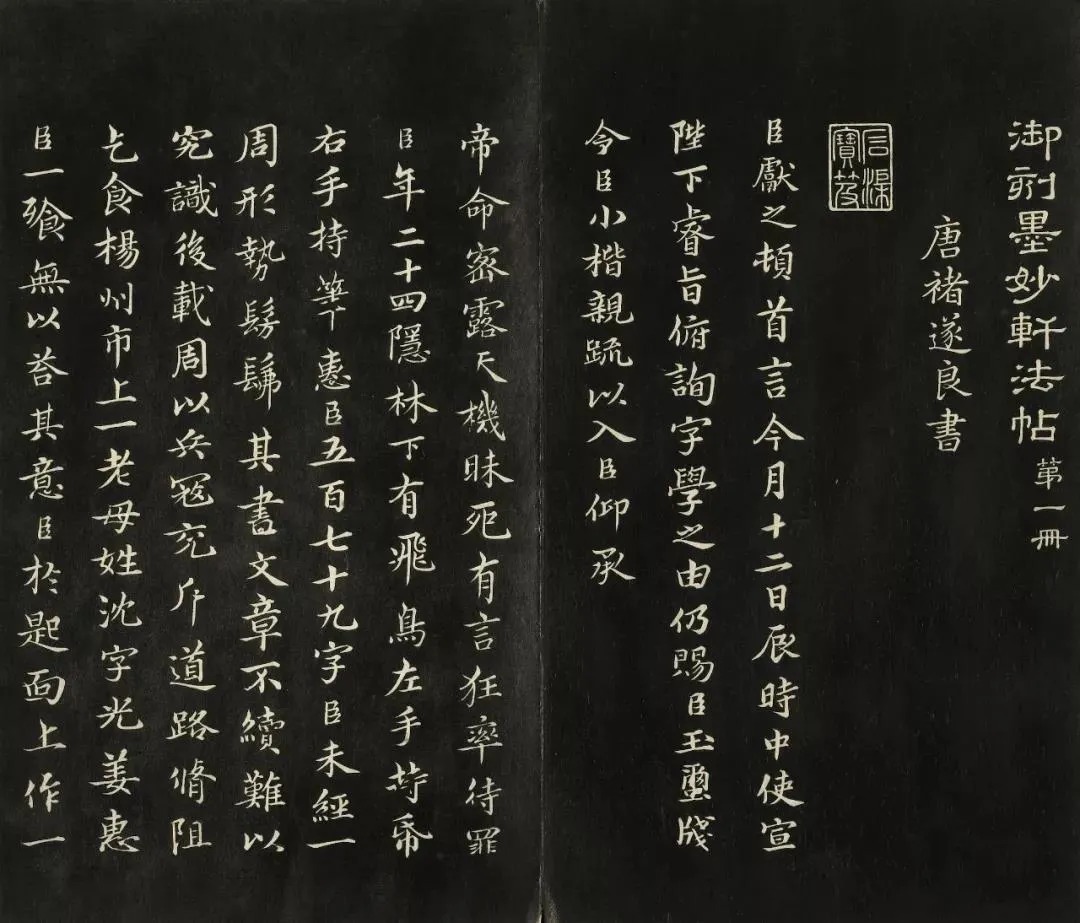 御刻墨妙軒法帖 第一冊
唐褚遂良書
臣獻之頓首言今月十二日辰時中使宣
陛下睿旨俯詢字學之由仍賜臣玉璽牋
令臣小楷親䟽以入臣仰承
帝命密露天機昧死有言狂率待罪
臣年二十四隱林下有飛鳥左手持帋
右手持筆惠臣五百七十九字臣未經一
周形勢髣髴其書文章不續難以
究識後載周以兵冦充斥道路脩阻
乞食楊州市上一老母姓沈字光姜惠
臣一飡無以荅其意臣於匙面上作一